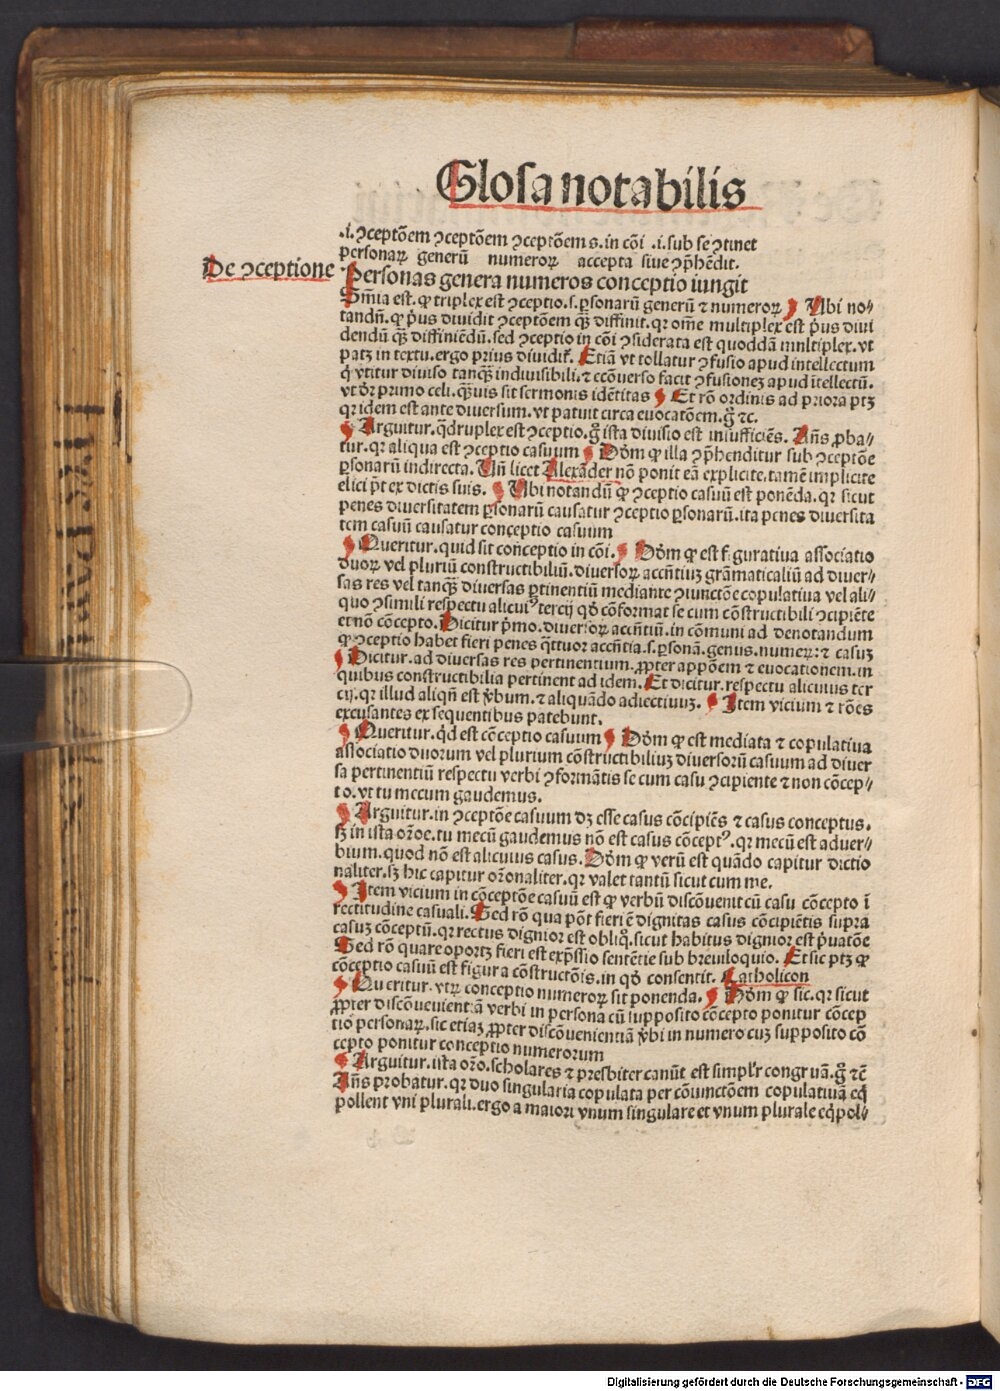 Glosa notabilis
.i. ꝯceptõem ꝯceptõem ꝯceptõem s. in cõi .i. sub se ꝯtinet
personaꝝ generũ numeroꝝ accepta siue ꝯp̃hẽdit.
De ꝯceptione
Personas genera numeros conceptio iungit
Sm̃ia est. ꝙ triplex est ꝯceptio. s. ꝑsonarũ generũ ⁊ numeroꝝ Ubi no⸗
tandũ. ꝙ p̃us diuidit ꝯceptõem qꝫ̃ diffinit. qꝛ om̃e multiplex est p̃us diui
dendũ qꝫ̃ diffiniẽdũ. sed ꝯceptio in cõi ꝯsiderata est quoddã multiplex. vt
patꝫ in textu. ergo prius diuidit̃. Etiã vt tollatur ꝯfusio apud intellectum
q̃ vtitur diuiso tanqꝫ̃ indiuisibili. ⁊ ecõuerso facit ꝯfusioneꝫ apud ĩtellectũ.
vt dr̃ primo celi. qꝫ̃uis sit sermonis idẽtitas Et rõ ordinis ad priora ptꝫ
qꝛ idem est ante diuersum. vt patuit circa euocatõem. g̃ ⁊c.
Arguitur. q̃druplex est ꝯceptio. g̃ ista diuisio est insufficiẽs. Añs ꝓba⸗
tur. qꝛ aliqua est ꝯceptio casuum Dõm ꝙ illa ꝯp̃henditur sub ꝯceptõe
ꝑsonarũ indirecta. Uñ licet Alexãder nõ ponit eã explicite. tamẽ implicite
elici p̃t ex dictis suis. Ubi notandũ ꝙ ꝯceptio casuũ est ponẽda. qꝛ sicut
penes diuersitatem ꝑsonarũ causatur ꝯceptio ꝑsonarũ. ita penes diuersita
tem casuũ causatur conceptio casuum
Queritur. quid sit conceptio in cõi. Dõm ꝙ est figuratiua associatio
duoꝝ vel pluriũ constructibiliũ. diuersoꝝ accñtiuꝫ grãmaticaliũ ad diuer⸗
sas res vel tanqꝫ̃ diuersas ꝑtinentiũ mediante ꝯiunctõe copulatiua vel ali⸗
quo ꝯsimili respectu alicuiꝰ tercij qd̃ cõformat se cum cõstructibili ꝯcipiẽte
et nõ cõcepto. Dicitur p̃mo. diuersoꝝ accñtiũ. in cõmuni ad denotandum
ꝙ ꝯceptio habet fieri penes q̃ttuor accñtia. s. ꝑsonã. genus. numeꝝ: ⁊ casuꝫ
Dicitur. ad diuersas res pertinentium. ꝓpter appõem ⁊ euocationem. in
quibus constructibilia pertinent ad idem. Et dicitur. respectu alicuius ter
cij. qꝛ illud aliqñ est v̾bum. ⁊ aliquãdo adiectiuuꝫ. Item vicium ⁊ rões
excusantes ex sequentibus patebunt.
Queritur. qd̃ est cõceptio casuum Dõm ꝙ est mediata ⁊ copulatiua
associatio duorum vel plurium cõstructibiliuꝫ diuersorũ casuum ad diuer
sa pertinentiũ respectu verbi ꝯformãtis se cum casu ꝯcipiente ⁊ non cõcep⸗
to. vt tu mecum gaudemus.
Arguitur. in ꝯceptõe casuum dꝫ esse casus cõcipiẽs ⁊ casus conceptus.
sꝫ in ista or̃oe. tu mecũ gaudemus nõ est casus cõceptꝰ. qꝛ mecũ est aduer⸗
bium. quod nõ est alicuius casus. Dõm ꝙ verũ est quãdo capitur dictio
naliter. sꝫ hic capitur or̃onaliter. qꝛ valet tantũ sicut cum me.
Item vicium in cõceptõe casuũ est ꝙ verbũ discõuenit cũ casu cõcepto ĩ
rectitudine casuali. Sed rõ qua põt fieri ẽ dignitas casus cõcipiẽtis supra
casuꝫ cõceptũ. qꝛ rectus dignior est obliq̃. sicut habitus dignior est p̃uatõe
Sed rõ quare oportꝫ fieri est exp̃ssio sentẽtie sub breuiloquio. Et sic ptꝫ ꝙ
cõceptio casuũ est figura cõstructõis. in qd̃ consentit. Catholicon
Queritur. vtꝝ conceptio numeroꝝ sit ponenda. Dõm ꝙ sic. qꝛ sicut
ꝓpter discõueuientiã verbi in persona cũ supposito cõcepto ponitur cõcep
tio personaꝝ. sic etiaꝫ ꝓpter discõuenientiã v̾bi in numero cuꝫ supposito cõ
cepto ponitur conceptio numerorum
Arguitur. ista or̃o. scholares ⁊ presbiter canũt est simplr̃ congrua. g̃ ⁊c̃
Añs probatur. qꝛ duo singularia copulata per cõiunctõem copulatiuã eq̃
pollent vni plurali. ergo a maiori vnum singulare et vnum plurale eq̃pol⸗
Digitalisierung gefördert durch die Deutsche Forschungsgemeinschaft - DFG